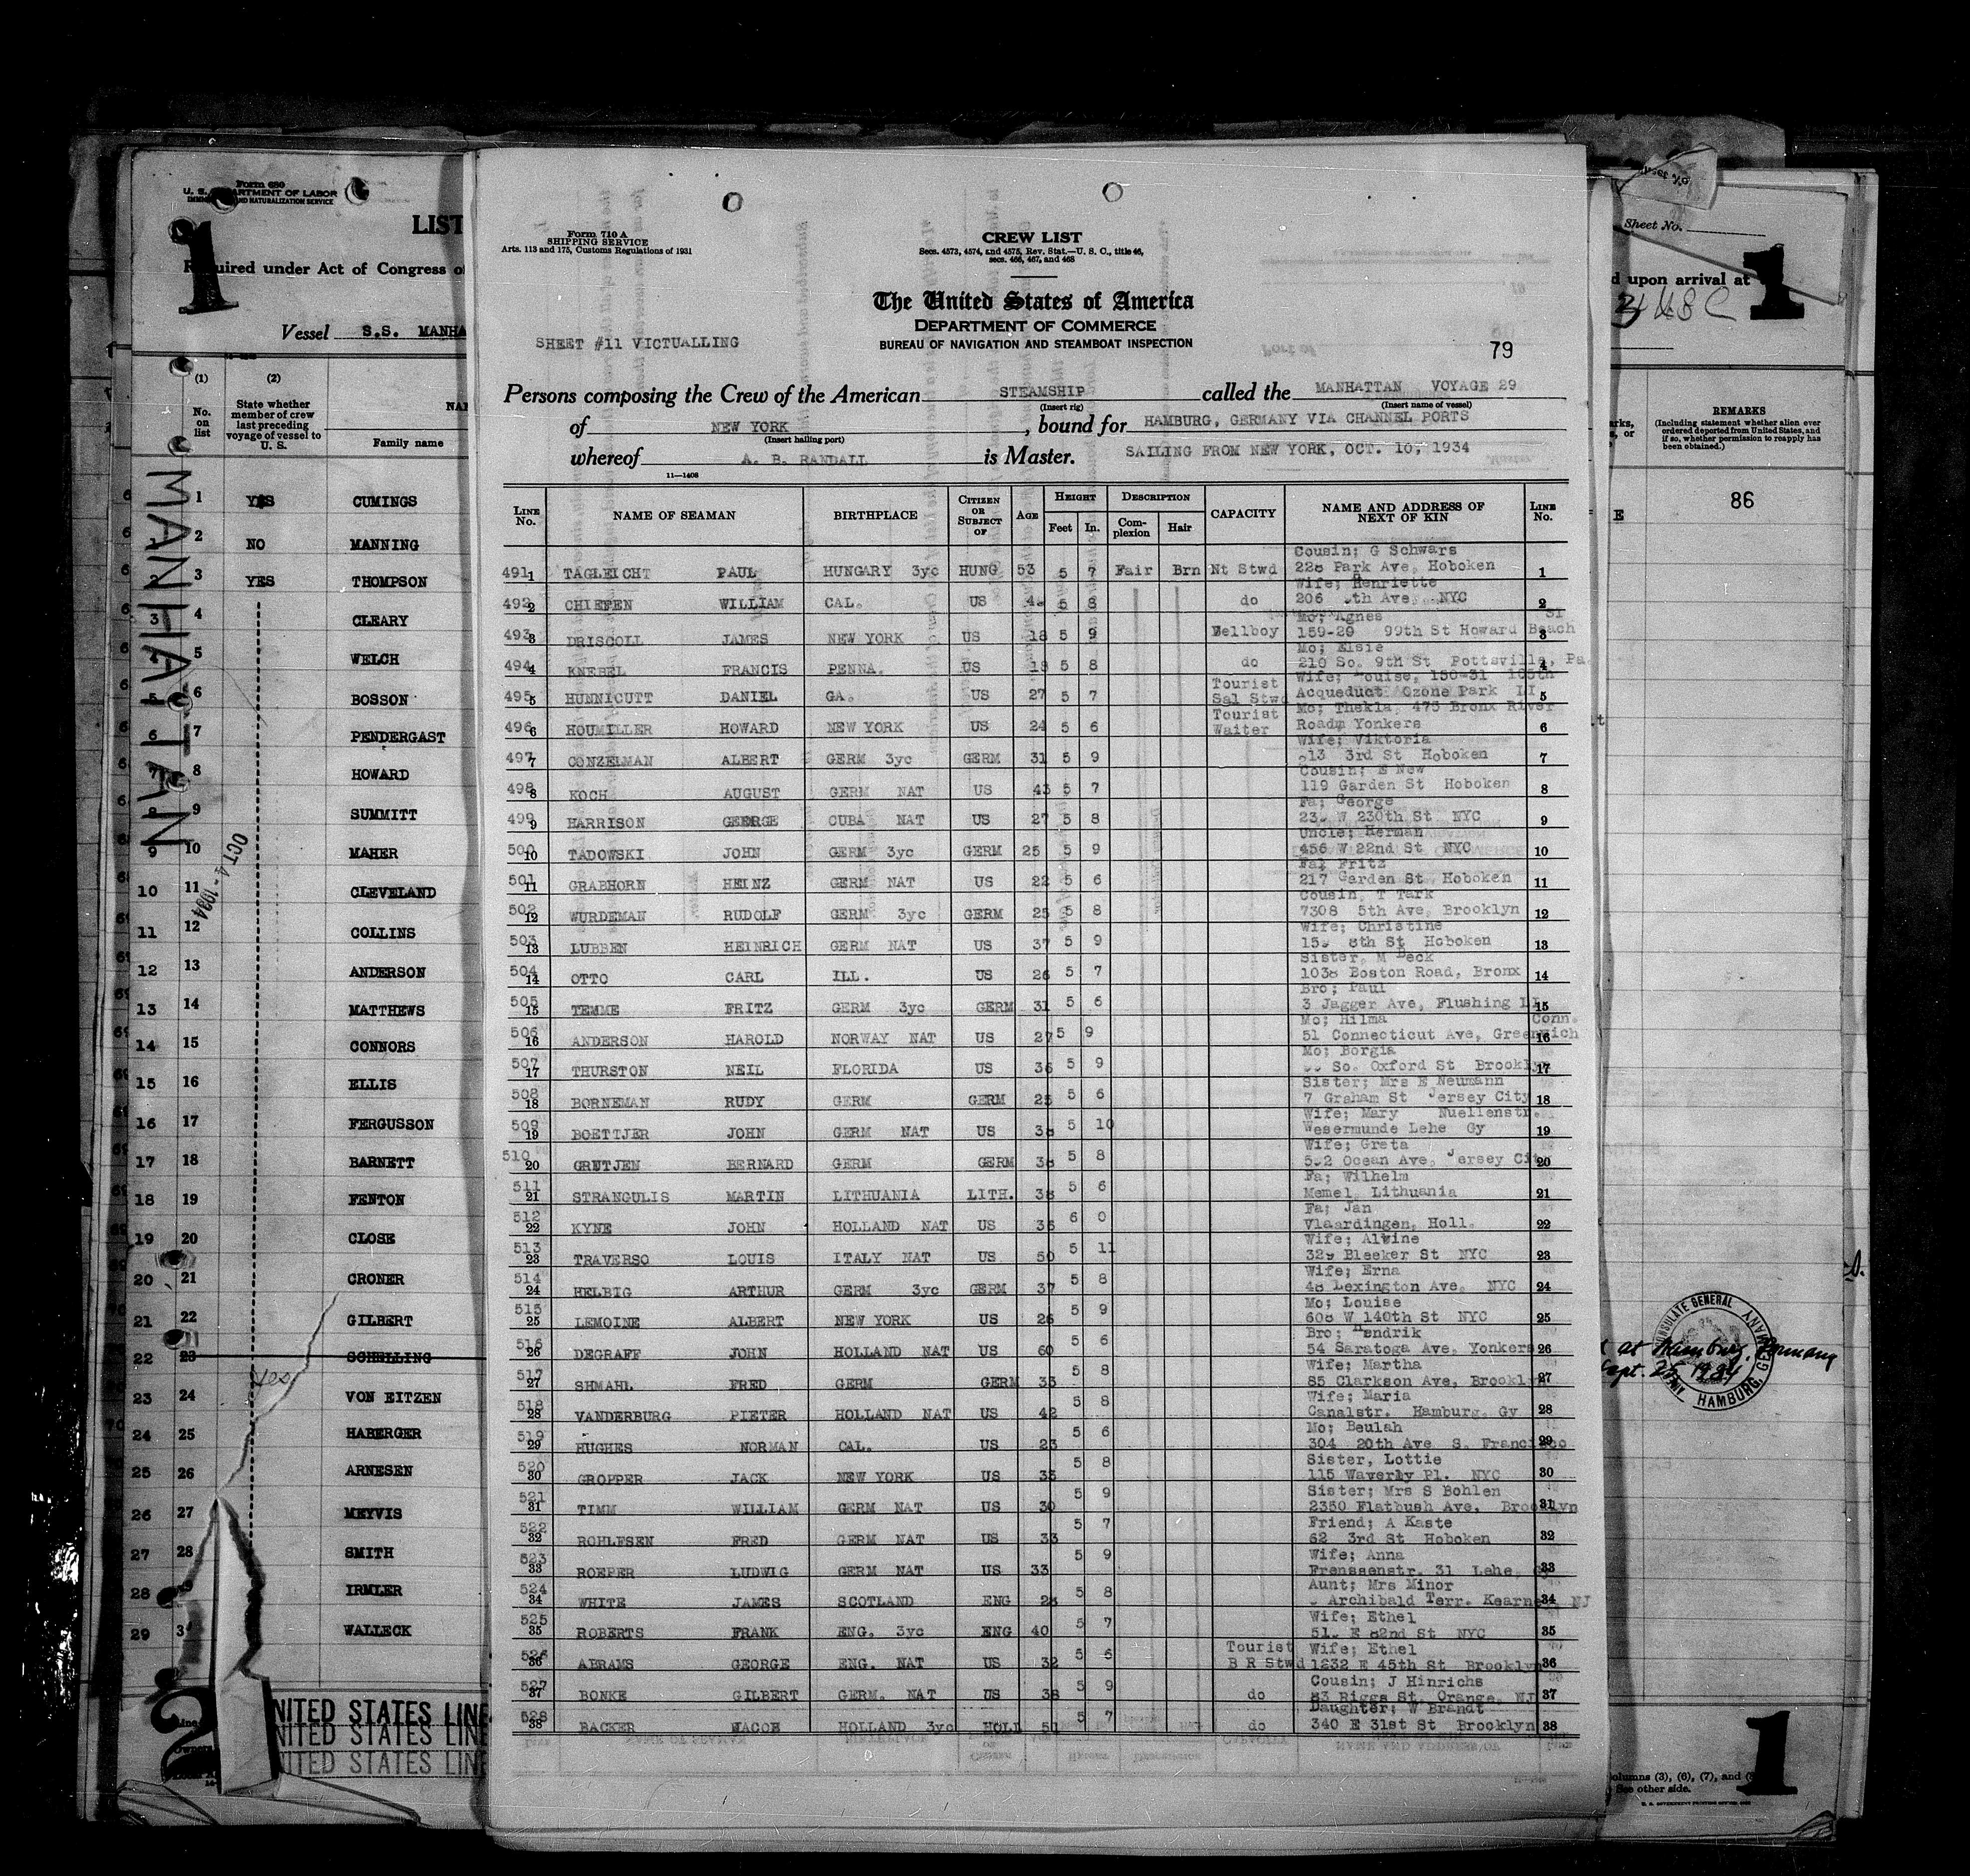 Form 680
U. S. DEPARTMENT OF LABOR
IMMIGRATION AND NATURALIZATION SERVICE
1
LIST
Required under Act of Congress of
Vessel S.S. MANHA
(1) (2)
No. on list
State whether member of crew last preceding voyage of vessel to U. S.
NAM
Family name
MANHATTAN
OCT 4 - 1934
1 YES CUMINGS
2 NO MANNING
3 YES THOMPSON
3 4 CLEARY
5 WELCH
5 6 BOSSON
6 7 PENDERGAST
7 8 HOWARD
9 SUMMITT
9 10 MAHER
10 11 CLEVELAND
11 12 COLLINS
12 13 ANDERSON
13 14 MATTHEWS
14 15 CONNORS
15 16 ELLIS
16 17 FERGUSSON
17 18 BARNETT
18 19 FENTON
19 20 CLOSE
20 21 CRONER
21 22 GILBERT
22 23 SCHELLING
yes
23 24 VON EITZEN
24 25 HABERGER
25 26 ARNESEN
26 27 MEYVIS
27 28 SMITH
28 IRMLER
29 WALLECK
2
UNITED STATES LINE
UNITED STATES LINE
UNITED STATES LINE
Form 710 A
SHIPPING SERVICE
Arts. 113 and 175, Customs Regulations of 1931
CREW LIST
Secs. 4573, 4574, and 4575, Rev. Stat.—U. S. C., title 46,
secs. 466, 467, and 468
The United States of America
DEPARTMENT OF COMMERCE
BUREAU OF NAVIGATION AND STEAMBOAT INSPECTION
SHEET #11 VICTUALLING
79
Persons composing the Crew of the American STEAMSHIP called the MANHATTAN VOYAGE 29
(Insert rig) (Insert name of vessel)
of NEW YORK, bound for HAMBURG, GERMANY VIA CHANNEL PORTS
(Insert hailing port)
whereof A. B. RANDALL is Master. SAILING FROM NEW YORK, OCT. 10, 1934
11—1408
LINE No. NAME OF SEAMAN BIRTHPLACE CITIZEN OR SUBJECT OF AGE HEIGHT Feet In. DESCRIPTION Complexion Hair CAPACITY NAME AND ADDRESS OF NEXT OF KIN LINE No.
Cousin; G Schwars
491 1 TAGLEICHT PAUL HUNGARY 3yc HUNG 53 5 7 Fair Brn Nt Stwd 228 Park Ave, Hoboken 1
Wife; Henriette
492 2 CHIEFEN WILLIAM CAL. US 5 8 do 206 th Ave, NYC 2
Mo; Agnes
493 3 DRISCOLL JAMES NEW YORK US 18 5 9 Bellboy 159-29 99th St Howard Beach 3
Mo; Elsie
494 4 KNEBEL FRANCIS PENNA. US 18 5 8 do 210 So. 9th St Pottsville, Pa 4
Wife; Louise, 150-31 105th
495 5 HUNNICUTT DANIEL GA. US 27 5 7 Tourist Sal Stwd Acqueduct Ozone Park LI 5
Mo; Thekla, 475 Bronx River
496 6 HOUMILLER HOWARD NEW YORK US 24 5 6 Tourist Waiter Roadm Yonkers 6
Wife; Viktoria
497 7 CONZELMAN ALBERT GERM 3yc GERM 31 5 9 13 3rd St Hoboken 7
Cousin; E New
498 8 KOCH AUGUST GERM NAT US 43 5 7 119 Garden St Hoboken 8
Fa; George
499 9 HARRISON GEORGE CUBA NAT US 27 5 8 W 230th St NYC 9
Uncle; Herman
500 10 TADOWSKI JOHN GERM 3yc GERM 25 5 9 456 W 22nd St NYC 10
Fa; Fritz
501 11 GRABHORN HEINZ GERM NAT US 22 5 6 217 Garden St, Hoboken 11
Cousin, T Tark
502 12 WURDEMAN RUDOLF GERM 3yc GERM 25 5 8 7308 5th Ave, Brooklyn 12
Wife; Christine
503 13 LUBBEN HEINRICH GERM NAT US 37 5 9 8th St Hoboken 13
Sister, M Beck
504 14 OTTO CARL ILL. US 26 5 7 1038 Boston Road, Bronx 14
Bro; Paul
505 15 TEMME FRITZ GERM 3yc GERM 31 5 6 3 Jagger Ave, Flushing LI 15
Mo; Hilma Conn.
506 16 ANDERSON HAROLD NORWAY NAT US 27 5 9 51 Connecticut Ave, Greenwich 16
Mo; Borgia
507 17 THURSTON NEIL FLORIDA US 36 5 9 So. Oxford St Brooklyn 17
Sister; Mrs E Neumann
508 18 BORNEMAN RUDY GERM GERM 25 5 6 7 Graham St Jersey City 18
Wife; Mary Nuellenstr.
509 19 BOETTJER JOHN GERM NAT US 38 5 10 Wesermunde Lehe Gy 19
Wife; Greta
510 20 GRUTJEN BERNARD GERM GERM 38 5 8 Ocean Ave, Jersey City 20
Fa; Wilhelm
511 21 STRANGULIS MARTIN LITHUANIA LITH. 38 5 6 Memel, Lithuania 21
Fa; Jan
512 22 KYNE JOHN HOLLAND NAT US 36 6 0 Vlaardingen, Holl. 22
Wife; Alwine
513 23 TRAVERSO LOUIS ITALY NAT US 50 5 11 329 Bleeker St NYC 23
Wife; Erna
514 24 HELBIG ARTHUR GERM 3yc GERM 37 5 8 48 Lexington Ave, NYC 24
Mo; Louise
515 25 LEMOINE ALBERT NEW YORK US 26 5 9 608 W 140th St NYC 25
Bro; Hendrik
516 26 DEGRAFF JOHN HOLLAND NAT US 60 5 6 54 Saratoga Ave, Yonkers 26
Wife; Martha
517 27 SHMAHL FRED GERM GERM 35 5 8 85 Clarkson Ave, Brooklyn 27
Wife; Maria
518 28 VANDERBURG PIETER HOLLAND NAT US 42 5 8 Canalstr. Hamburg, Gy 28
Mo; Beulah
519 29 HUGHES NORMAN CAL. US 23 5 6 304 20th Ave S. Francisco 29
Sister, Lottie
520 30 GROPPER JACK NEW YORK US 33 5 8 115 Waverly Pl. NYC 30
Sister; Mrs S Bohlen
521 31 TIMM WILLIAM GERM NAT US 30 5 9 2350 Flatbush Ave, Brooklyn 31
Friend; A Kaste
522 32 ROHLFSEN FRED GERM NAT US 33 5 7 62 3rd St Hoboken 32
Wife; Anna
523 33 ROEPER LUDWIG GERM NAT US 33 5 9 Frenssenstr. 31 Lehe, Gy 33
Aunt; Mrs Minor
524 34 WHITE JAMES SCOTLAND ENG 5 8 Archibald Terr. Kearney NJ 34
Wife; Ethel
525 35 ROBERTS FRANK ENG. 3yc ENG 40 5 7 E 82nd St NYC 35
Wife; Ethel
526 36 ABRAMS GEORGE ENG. NAT US 32 5 6 Tourist B R Stwd 1232 E 45th St Brooklyn 36
Cousin; J Hinrichs
527 37 BONKE GILBERT GERM. NAT US 38 5 9 do 83 Riggs St, Orange, NJ 37
Daughter; W Brandt
528 38 BACKER JACOB HOLLAND 3yc HOLL 51 5 7 do 340 E 31st St Brooklyn 38
Sheet No.
d upon arrival at
1
REMARKS
(Including statement whether alien ever ordered deported from United States, and if so, whether permission to reapply has been obtained.)
E
86
at Hamburg, Germany
Sept. 25, 1934
CONSULATE GENERAL
HAMBURG, GERMANY
columns (3), (6), (7), and
See other side.
1